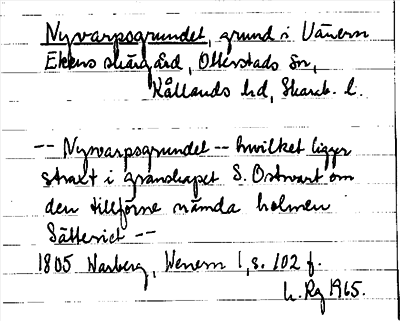 Nyvarpsgrundet, grund i Vänern
Ekens skärgård, Otterstads sn,
Kållands hd, Skarab. l.
-- Nyvarpsgrundet -- hwilket ligger
straxt i granskapet S. Ostwart om
den tillförne nämda holmen
Sätteriet --
1805 Warberg, Wenern 1, s. 102 f.
L. Rg 1965.